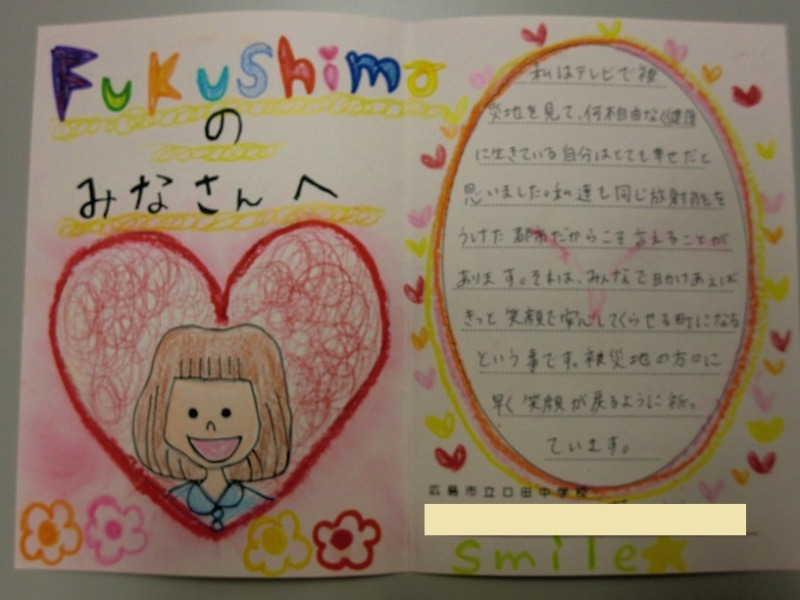 Fukushima
の
みなさんへ
私はテレビで被
災地を見て、何不自由なく健康
に生きている自分はとても幸せだと
思いました。私達も同じ放射能を
うけた都市だからこそ言えることが
あります。それは、みんなで助けあえば
きっと笑顔で安心してくらせる町になる
という事です。被災地の方々に
早く笑顔が戻るように祈っ
ています。
広島市立口田中学校
smile